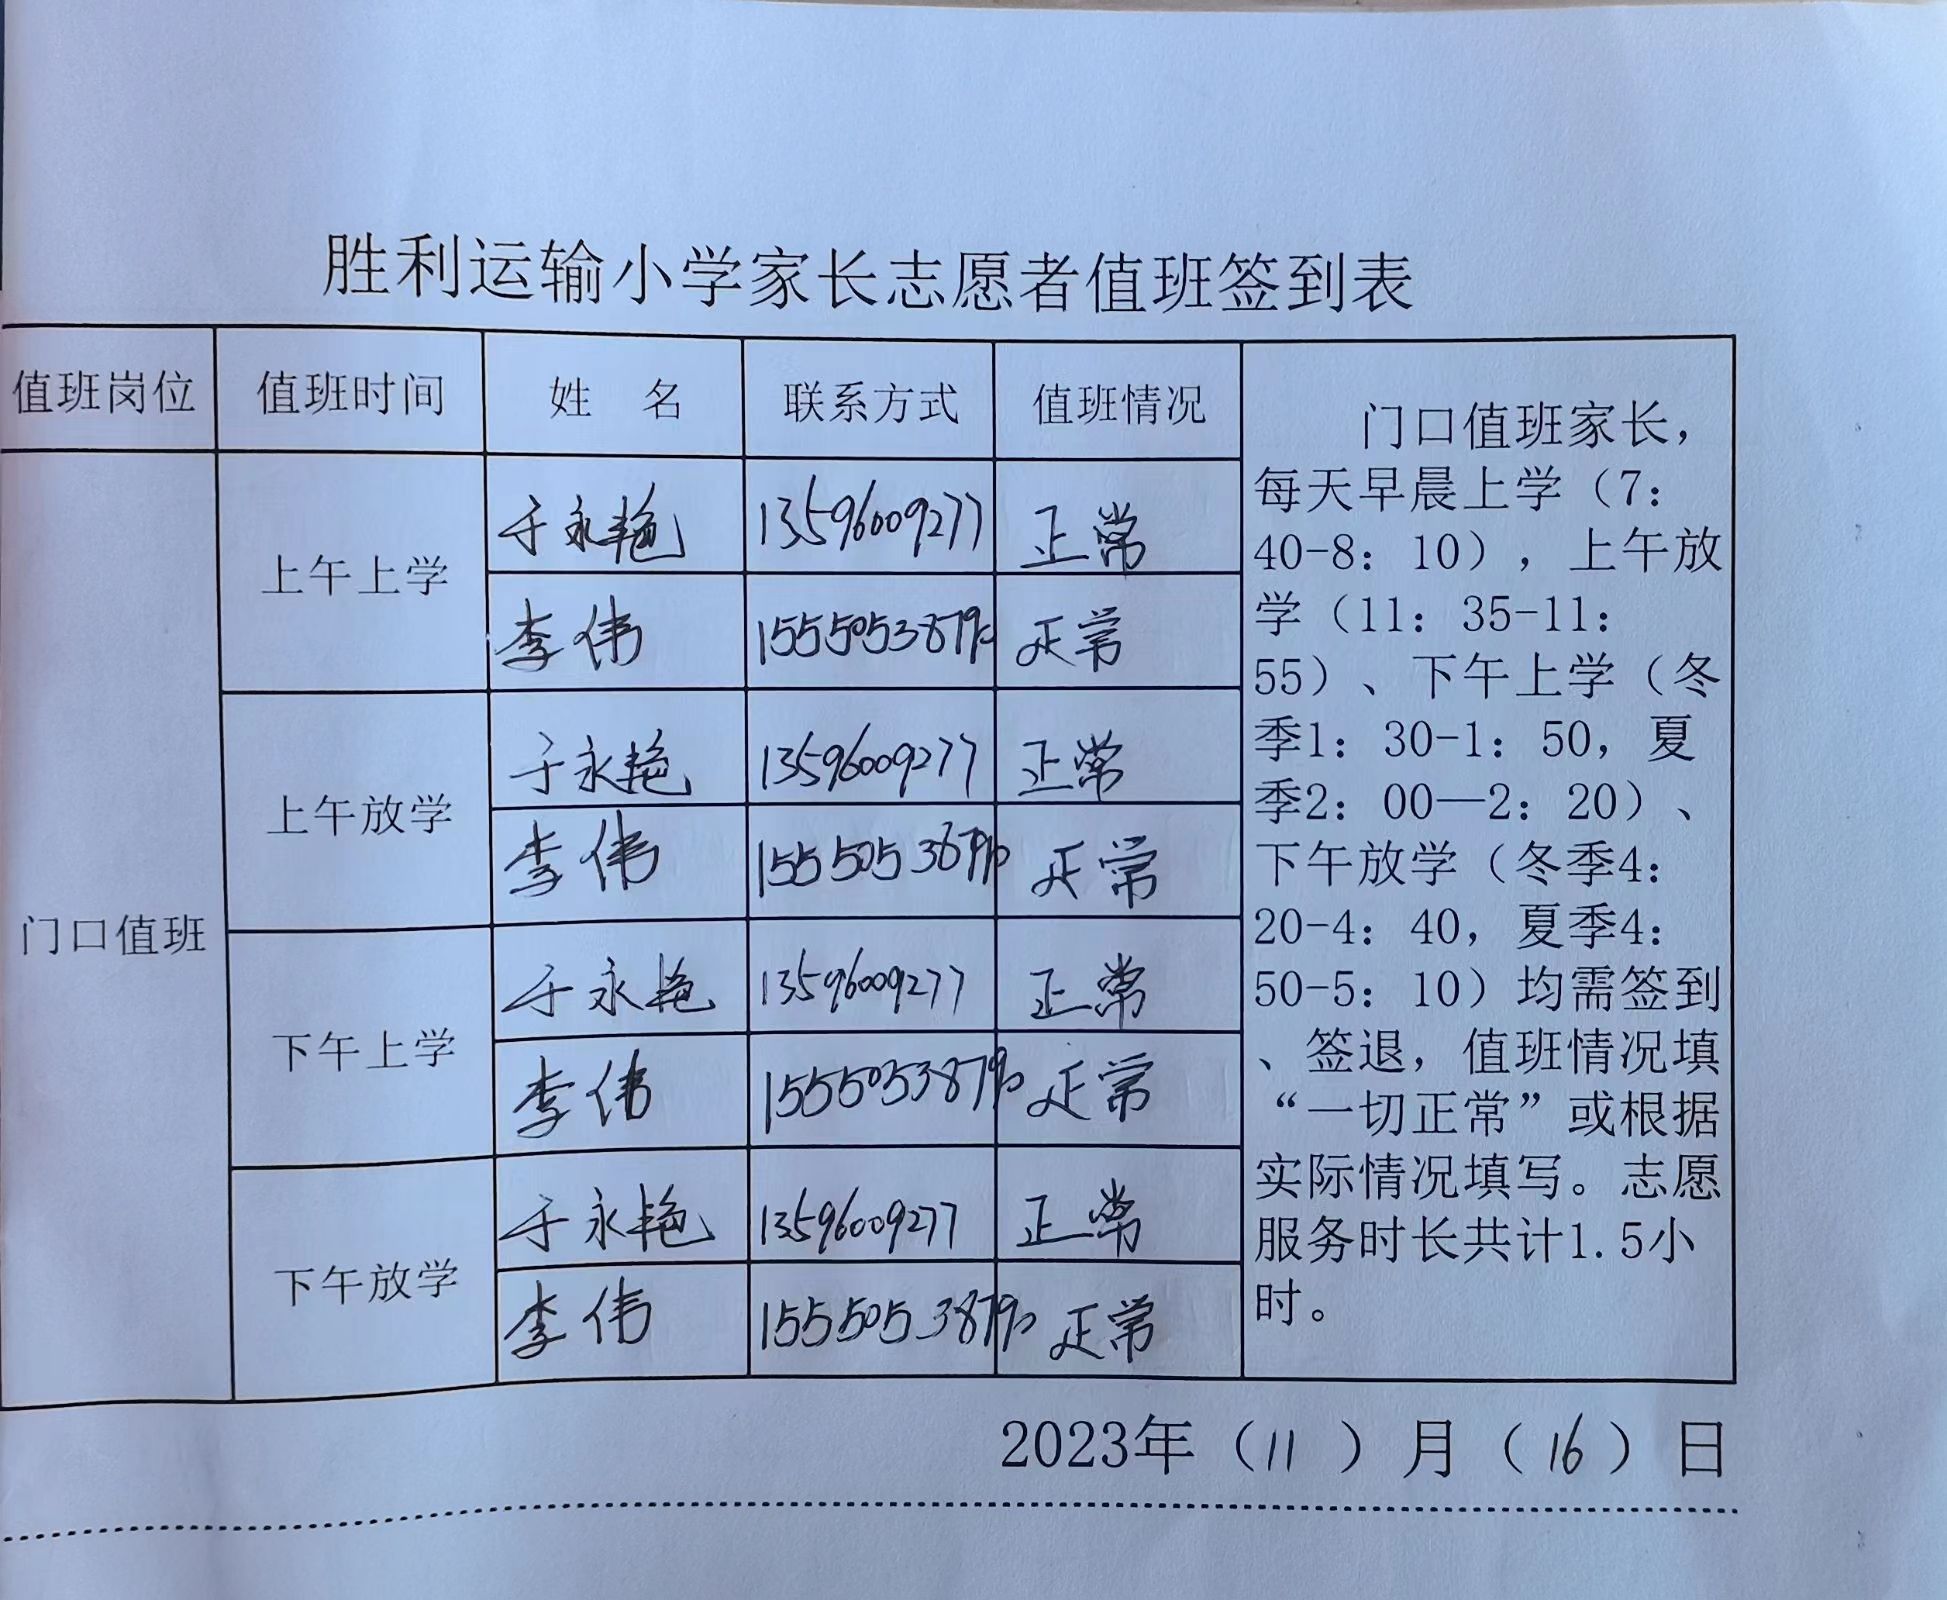 胜利运输小学家长志愿者值班签到表
值班岗位 值班时间 姓 名 联系方式 值班情况
门口值班
上午上学
于永艳 13596009277 正常
李伟 正常
上午放学
于永艳 13596009277 正常
李伟 正常
下午上学
于永艳 13596009277 正常
李伟 正常
下午放学
于永艳 13596009277 正常
李伟 正常
门口值班家长，
每天早晨上学（7：
40-8：10），上午放
学（11：35-11：
55）、下午上学（冬
季1：30-1：50，夏
季2：00—2：20）、
下午放学（冬季4：
20-4：40，夏季4：
50-5：10）均需签到
、签退，值班情况填
“一切正常”或根据
实际情况填写。志愿
服务时长共计1.5小
时。
2023年（11）月（16）日